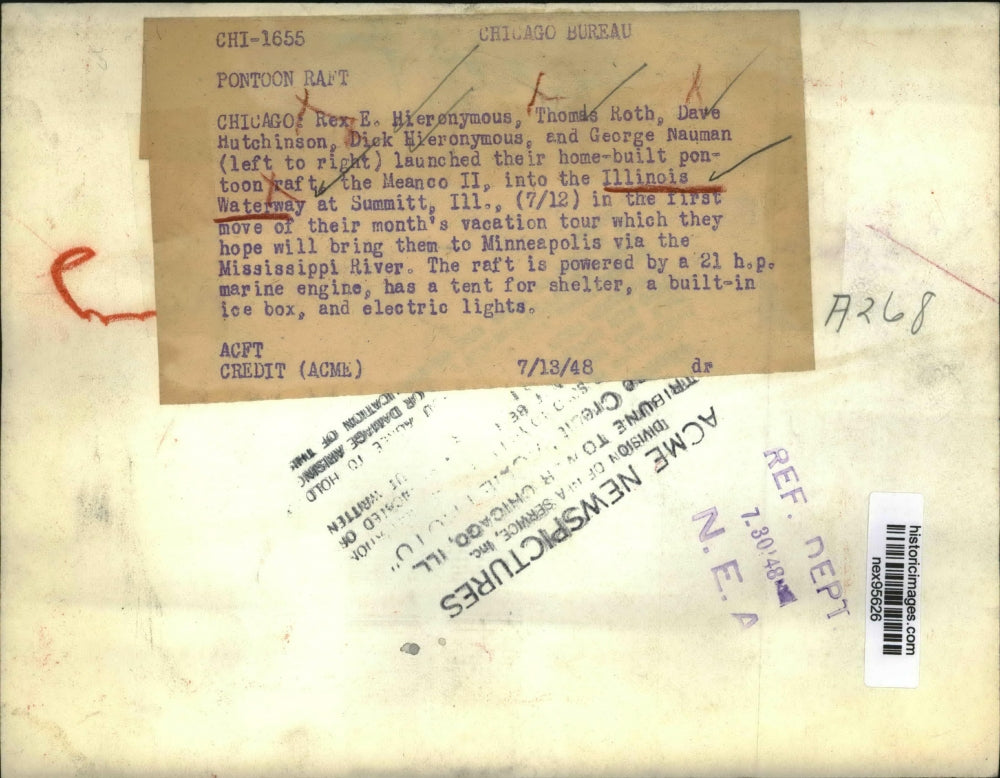 CHI-1655 CHICAGO BUREAU
PONTOON RAFT
CHICAGO: Rex E. Hieronymous, Thomas Roth, Dave
Hutchinson, Dick Hieronymous, and George Nauman
(left to right) launched their home-built pon-
toon raft, the Meanco II, into the Illinois
Waterway at Summitt, Ill., (7/12) in the first
move of their month's vacation tour which they
hope will bring them to Minneapolis via the
Mississippi River. The raft is powered by a 21 h.p.
marine engine, has a tent for shelter, a built-in
ice box, and electric lights.
ACFT
CREDIT (ACME) 7/13/48 dr
A268
ACME NEWSPICTURES
(DIVISION OF NEA SERVICE, Inc.
TRIBUNE TOWER CHICAGO, ILL
OR DAMAGE ARISING
AGREE TO HOLD
WRITTEN
REF. DEPT
7.30.48
N. E. A
historicimages.com
nex95626